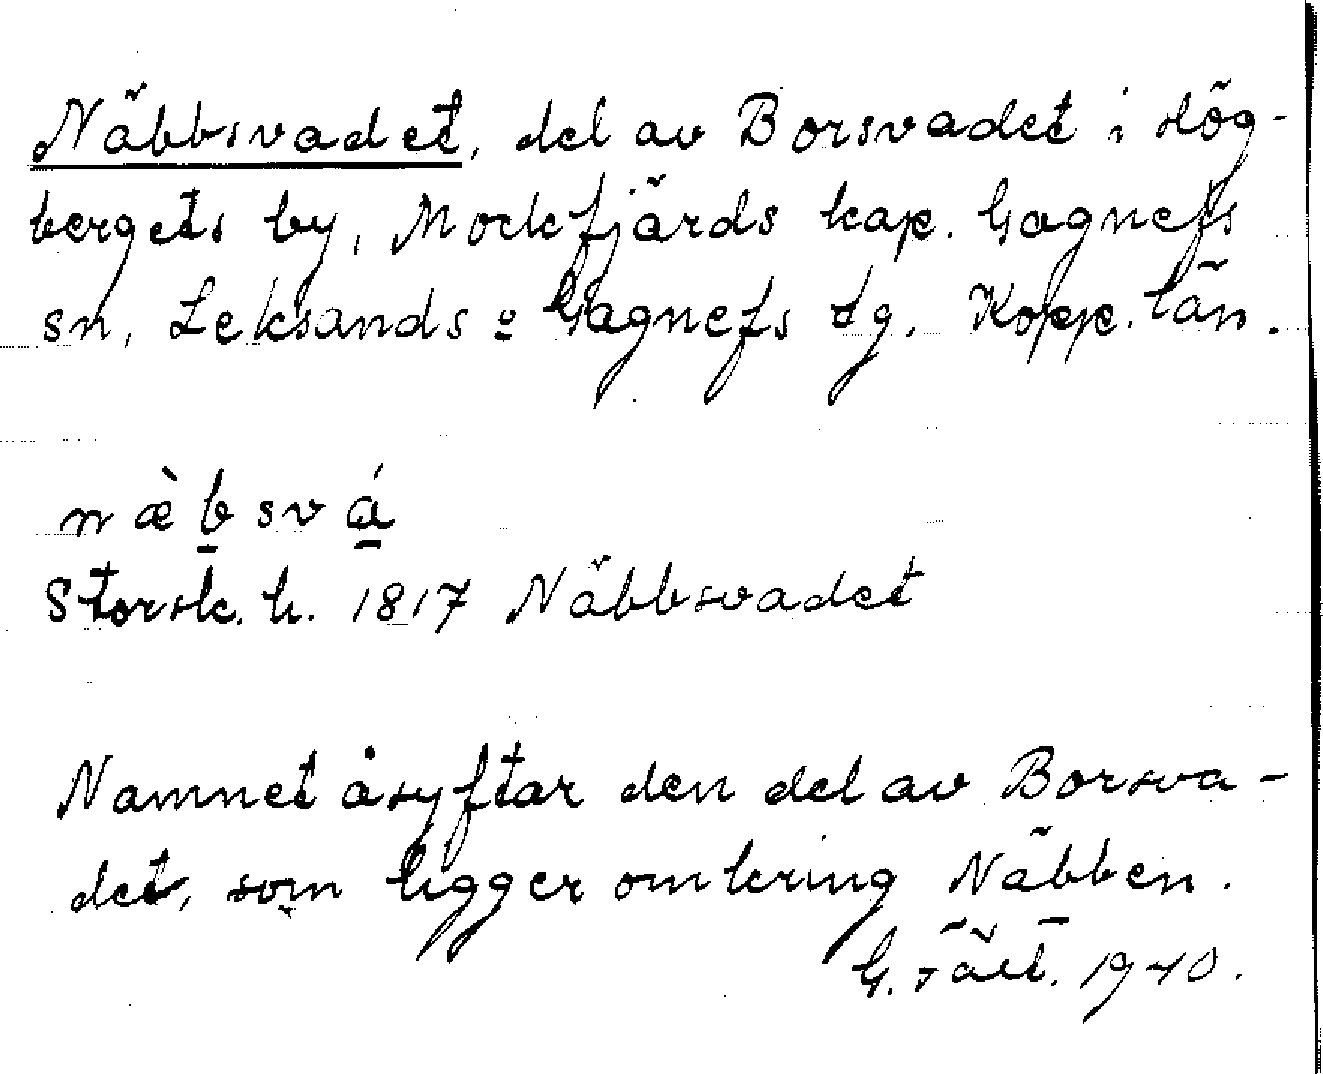 Näbbsvadet, del av Borsvadet i Hög-
bergets by, Mockfjärds kap. Gagnefs
sn, Leksands o Gagnefs tg. Kopp. län.
næ̀b̲svá̲
Storsk. h. 1817 Näbbsvadet
Namnet åsyftar den del av Borsva-
det, som ligger omkring Näbben.
G. 1940.